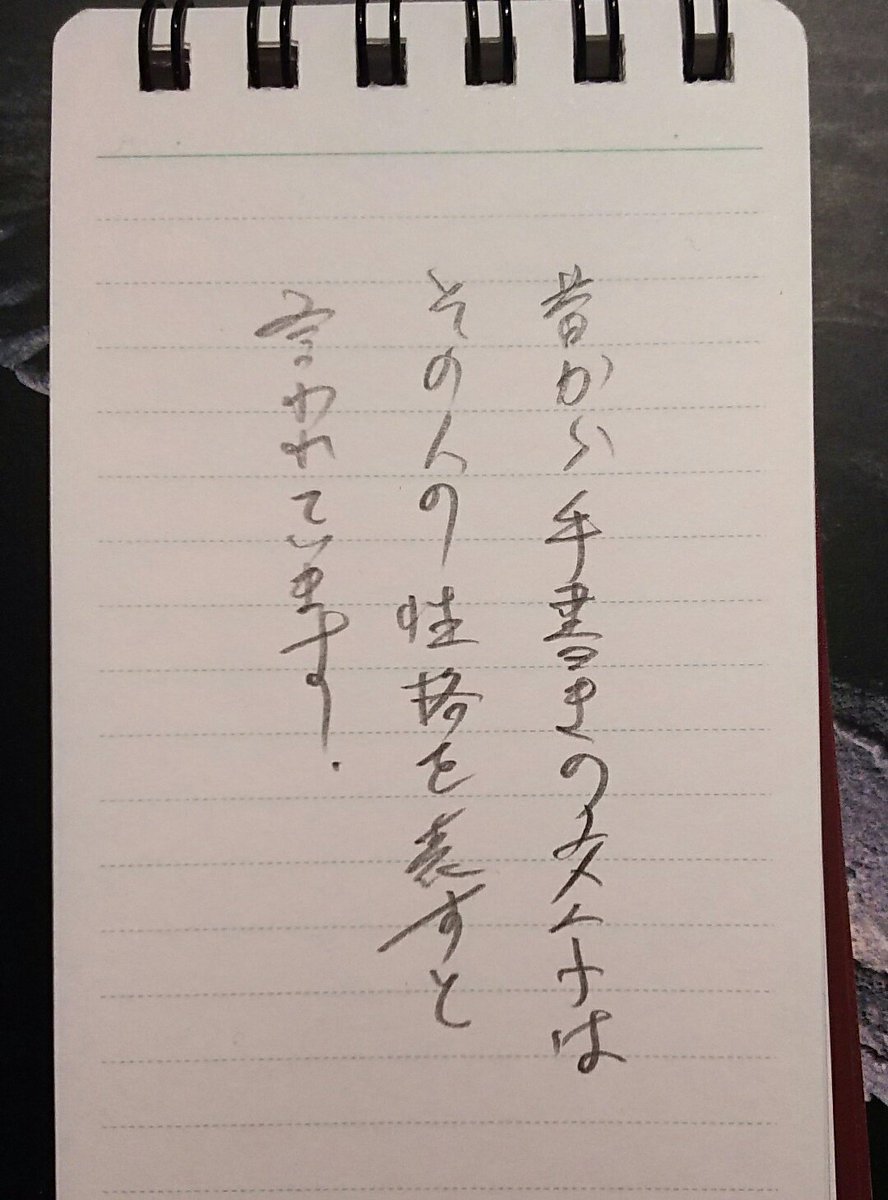 昔から手書きの文字は
その人の性格を表すと
言われています.